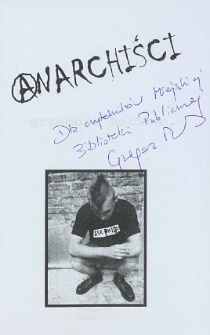 ANARCHIŚCI
Dla czytelników Miejskiej
Biblioteki Publicznej
Grzegorz